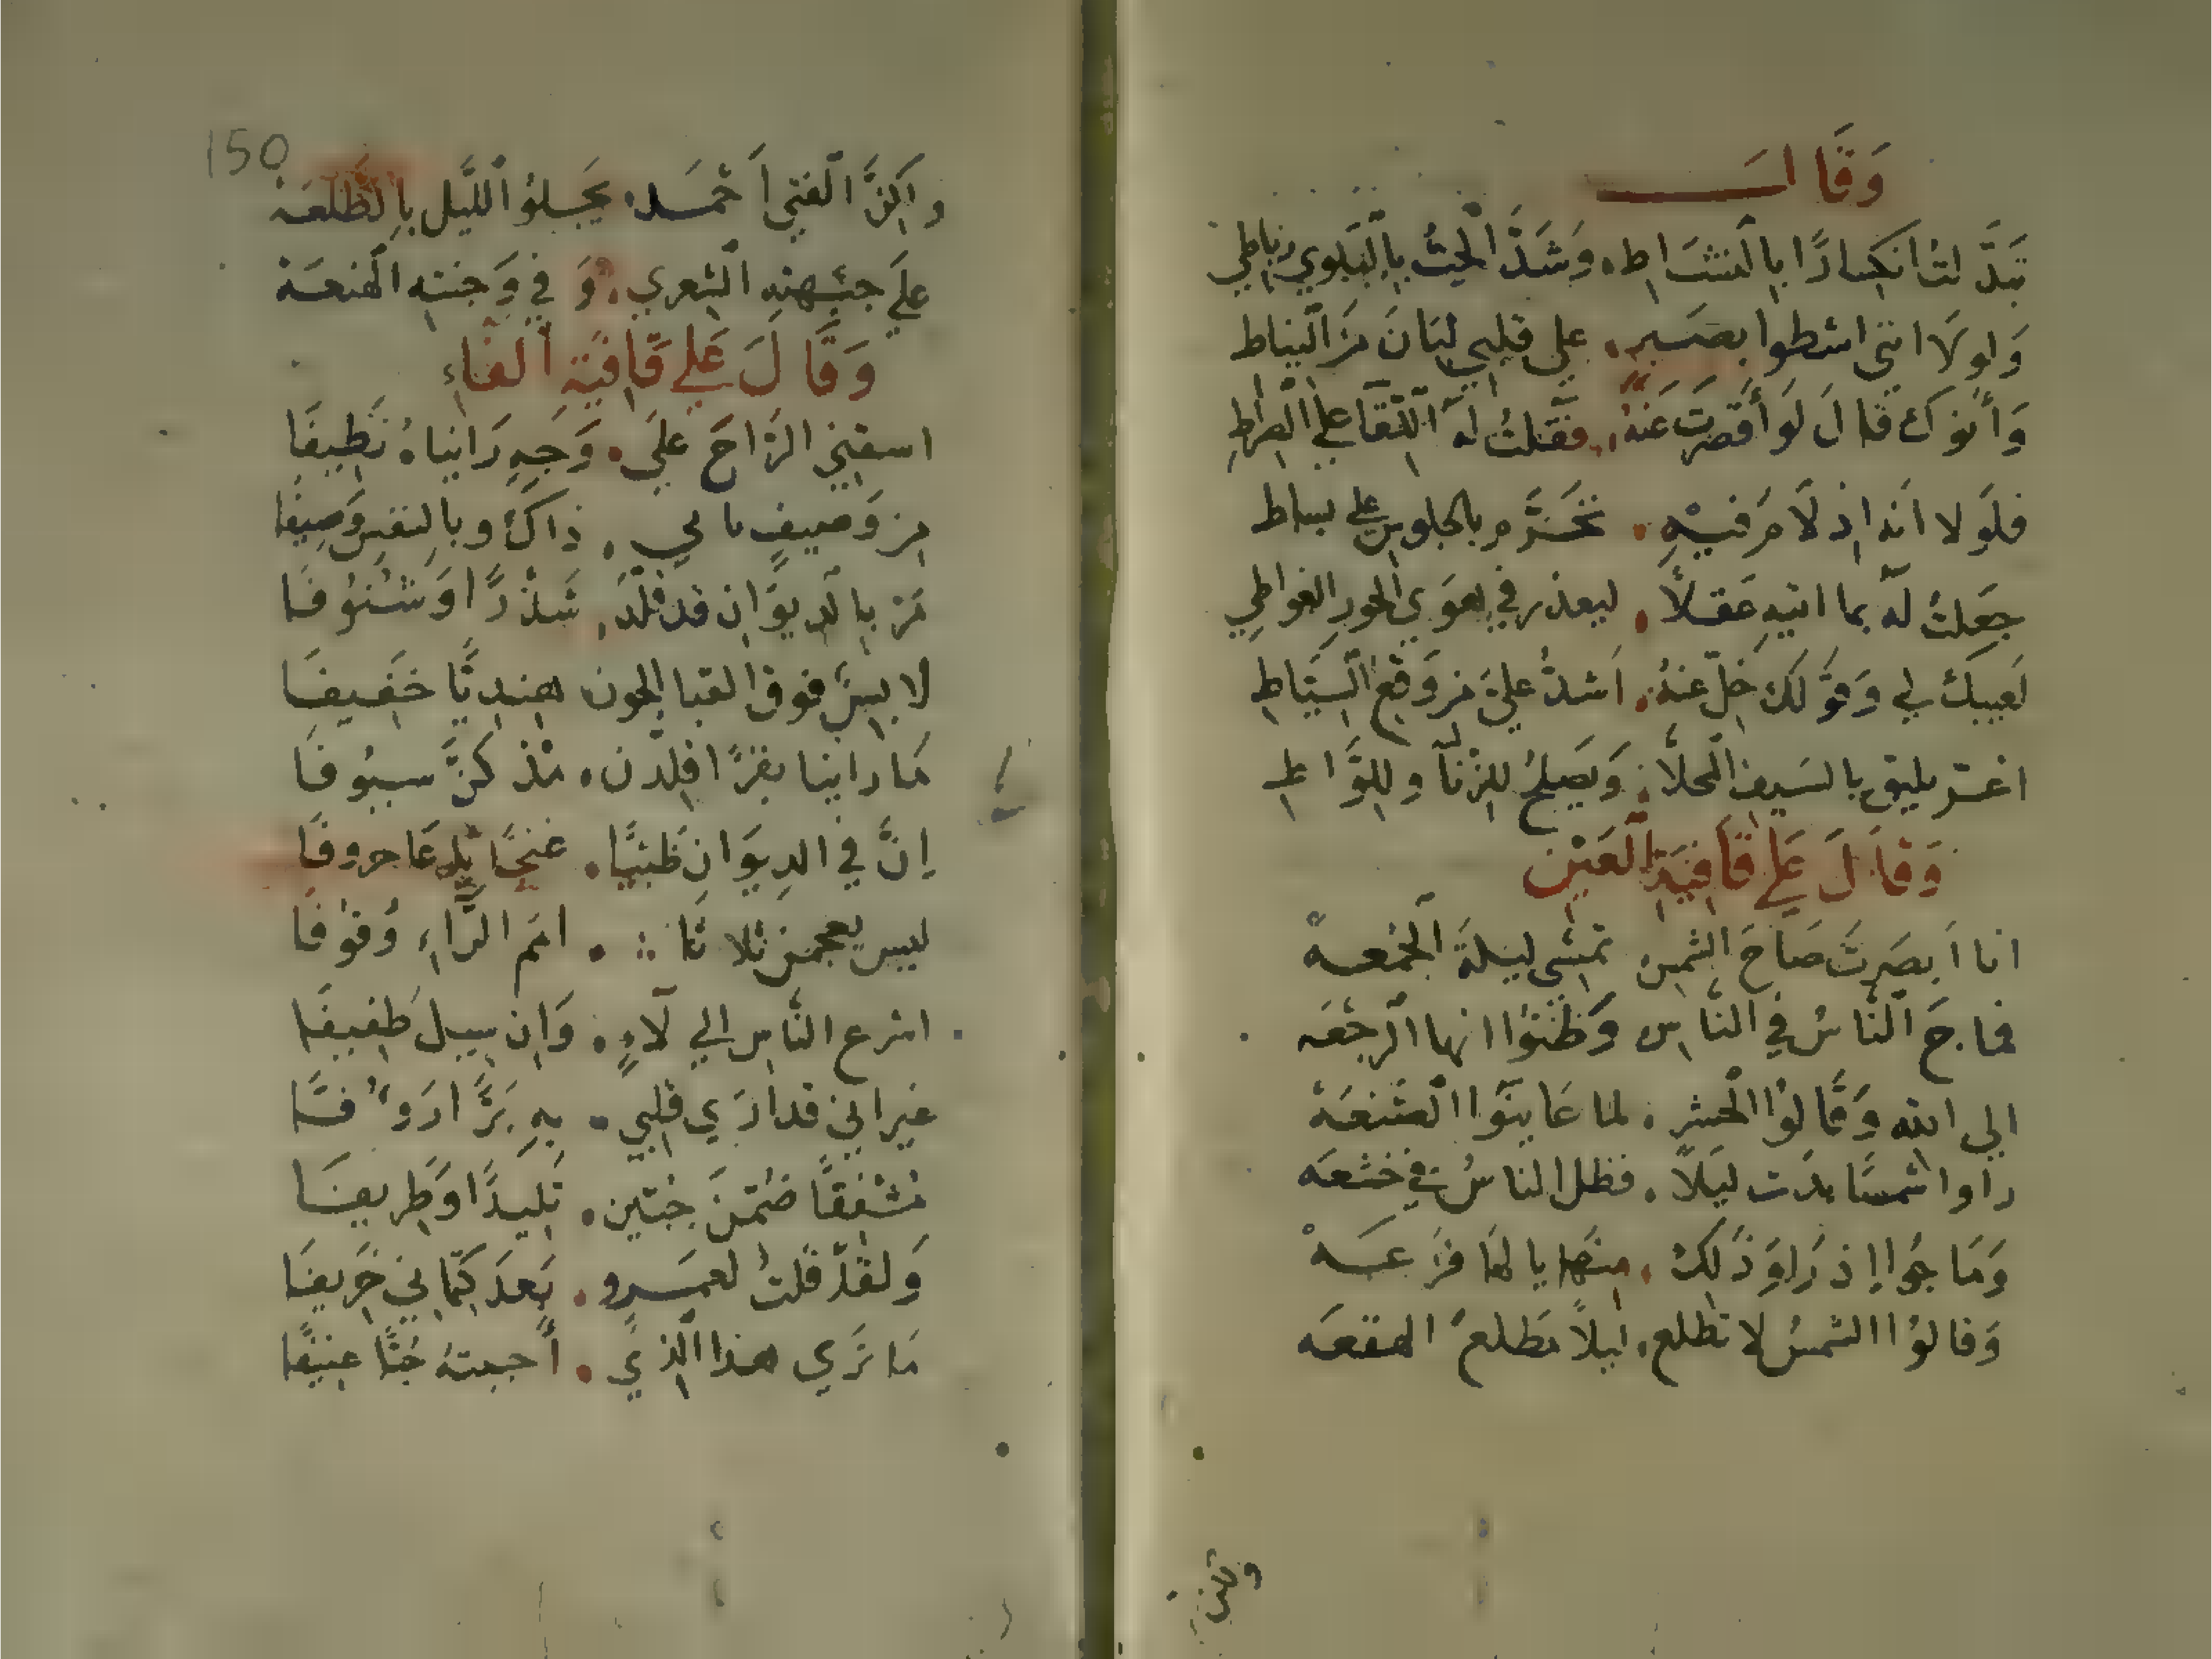 وَقَالَ
تبَدَّلت انكسارًا بالنشَاط. وَشَدَّ الحبُّ بالبَلوي رباطي
وَلولَا انني اسطوا بصَبر. على قلبي لبَانَ مِنَ النياط
وَأنوَك قَالَ لَو أقصَرتَ عَنهُ. فقلتُ لهُ اللقا على الصّراطِ
فلَولا انه اذ لَامَ فيهِ. بالجلوس على بساط
جَعَلتُ لهُ بما اتيهِ عَقلاً. ليعذر في هَوَي الحورِ العواطي
لَعيبكَ لي وَقَولكَ خلّ عَنهُ. اَشدُّ عليَّ من وَقعِ السّيَاطِ
اغر يليق بالسَيف المحلّا. وَيَصلحُ للزّنا وللوَّاطِ
وَقَالَ عَلي قَافيَةِ الْعَيْن
انا اَبصَرتُ صَاحَ الشمس تمشي ليلَةَ الجمعهْ
فماجَ النَّاسُ في النَّاسِ وَظَنّوا انها الرجْعَه
الي الله وَقَالوُا الحشر. لما عَاينَوا الصَّنعَهْ
راوا شمسًا بدَت ليَلاً. فظل الناسُ في خشعَه
وَمَاجُوا اِذ رَاوَ ذَلِكَ. منهَا يا لهَا فزعَهْ
وَقالوُا الشمسُ لا تطلع. ليلاً مَطلعَ الهقعَه
ولكن
150
ولكنَّ الفتي اَحْمَد. يَجلوُ اللَّيل بالطَّلعَهْ
عَلَي جبْهتهِ الشعري. وَفي وَجنتهِ الهنعَهْ
وَقَالَ عَلي قَافيَةِ الْفَاءِ
اسقني الرَّاحَ علَي. وَجهٍ رَايناهُ نَظِيفَا
من وَصيفٍ بابي. ذاكَ وبالنفسِ وَصيفَا
مَرَّ بالديوَانِ قد قلّدَ. شَذْرًا وَشُنوُفَا
لابسًا فوق القبا الجون هنديًّا خَفيفَا
مَا راينا بقرًا قلّدن. مُذ كنَّ سيوُفَا
اِنَّ في الدِيوَانِ ظَبيًا. غنجًا يدعَا حروفَا
ليس يعجمن ثلاثَا. امم الرَّاءِ وُقوُفَا
اشرع النَّاس الي لَاءٍ. وَاِن سيل طَفيفَا
غير اني قد ارَي قلبي. بهِ بَرًّا رَءوُفَا
مُشْفقًا ضُمّنَ جنبَين. تَليدًا وَطَريفَا
وَلقَد قلتُ لعَمرو. بَعدَ كتماني خَريفَا
مَا تَرَي هذا الذيَ. أحببتهُ حُبًّا عنيفَا